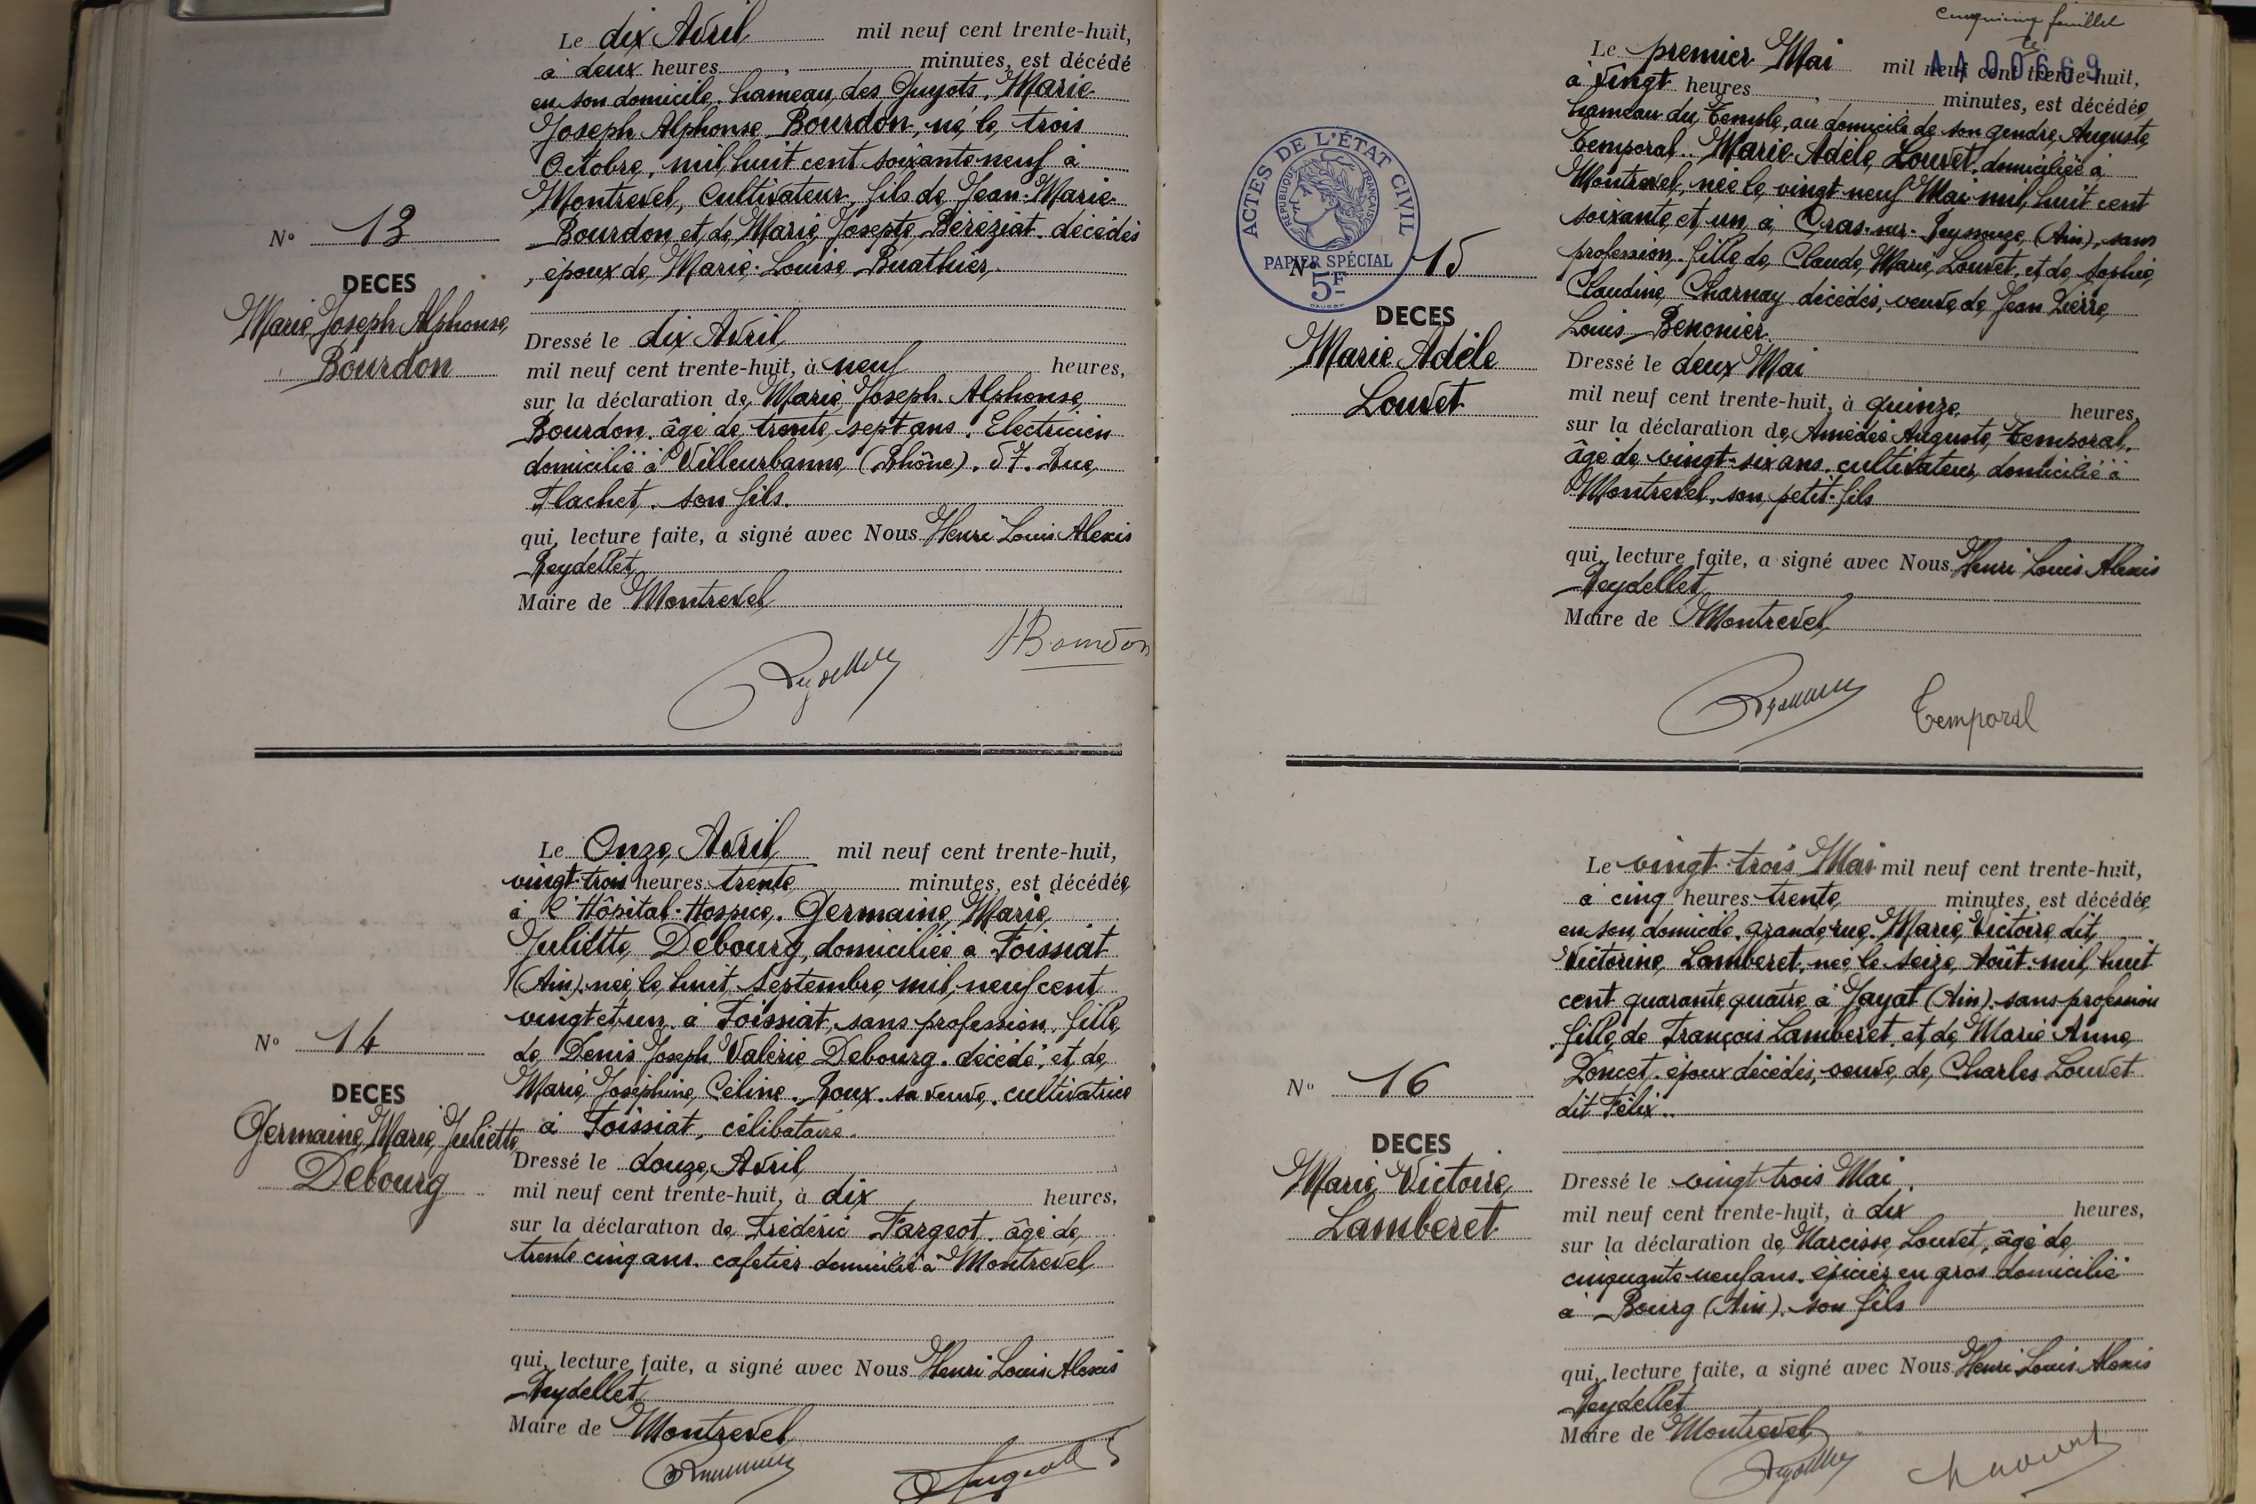 Le dix Avril mil neuf cent trente-huit,
à deux heures, minutes, est décédé
en son domicile, hameau des Guyots, Marie
Joseph Alphonse Bourdon, né le trois
Octobre, mil huit cent soixante neuf à
Montrevel, cultivateur, fils de Jean-Marie
Bourdon et de Marie Josepte Béréziat, décédés
, époux de Marie-Louise Buathier.
N° 13
DECES
Marie Joseph Alphonse
Bourdon
Dressé le dix Avril
mil neuf cent trente-huit, à neuf heures,
sur la déclaration de Marie Joseph Alphonse
Bourdon, âgé de trente sept ans, Electricien
domicilié à Villeurbanne (Rhône), 57, Rue
Flachet, son fils.
qui, lecture faite, a signé avec Nous Henri Louis Alexis
Reydellet
Maire de Montrevel
Reydellet
Bourdon
Le Onze Avril mil neuf cent trente-huit,
vingt-trois heures trente minutes, est décédée
à l'Hôpital-Hospice, Germaine Marie
Juliette Debourg, domiciliée à Foissiat
(Ain), née le huit Septembre mil neuf cent
vingt et un à Foissiat, sans profession, fille
de Denis Joseph Valérie Debourg, décédé, et de
Marie Joséphine Céline Roux sa veuve, cultivatrice
à Foissiat, célibataire.
N° 14
DECES
Germaine Marie Juliette
Debourg
Dressé le douze Avril
mil neuf cent trente-huit, à dix heures,
sur la déclaration de Frédéric Fargeot, âgé de
trente cinq ans, cafetier domicilié à Montrevel
qui, lecture faite, a signé avec Nous Henri Louis Alexis
Reydellet
Maire de Montrevel
Fargeot
cinquième feuillet
AA 00669
Le premier Mai mil neuf cent trente-huit,
à vingt heures, minutes, est décédée
hameau du Temple, au domicile de son gendre Auguste
Temporal, Marie Adèle Louvet, domiciliée à
Montrevel, née le vingt neuf Mai mil huit cent
soixante et un à Cras-sur-Reyssouze (Ain), sans
profession, fille de Claude Marie Louvet, et de Sophie
Claudine Charnay décédés, veuve de Jean Pierre
Louis Benonier.
ACTES DE L'ÉTAT CIVIL
RÉPUBLIQUE FRANÇAISE
PAPIER SPÉCIAL
5F
N° 15
DECES
Marie Adèle
Louvet
Dressé le deux Mai
mil neuf cent trente-huit, à quinze heures,
sur la déclaration de Amédée Auguste Temporal,
âgé de vingt-six ans, cultivateur, domicilié à
Montrevel, son petit-fils
qui, lecture faite, a signé avec Nous Henri Louis Alexis
Reydellet
Maire de Montrevel
Temporal
Le vingt-trois Mai mil neuf cent trente-huit,
à cinq heures trente minutes, est décédée
en son domicile, grande rue, Marie Victoire dit
Victorine Lamberet, née le seize Août mil huit
cent quarante quatre à Jayat (Ain), sans profession
fille de François Lamberet et de Marie Anne
Poncet, époux décédés, veuve de Charles Louvet
dit Félix.
N° 16
DECES
Marie Victoire
Lamberet
Dressé le vingt trois Mai
mil neuf cent trente-huit, à dix heures,
sur la déclaration de Narcisse Louvet, âgé de
cinquante neuf ans, épicier en gros domicilié
à Bourg (Ain), son fils
qui, lecture faite, a signé avec Nous Henri Louis Alexis
Reydellet
Maire de Montrevel
Reydellet